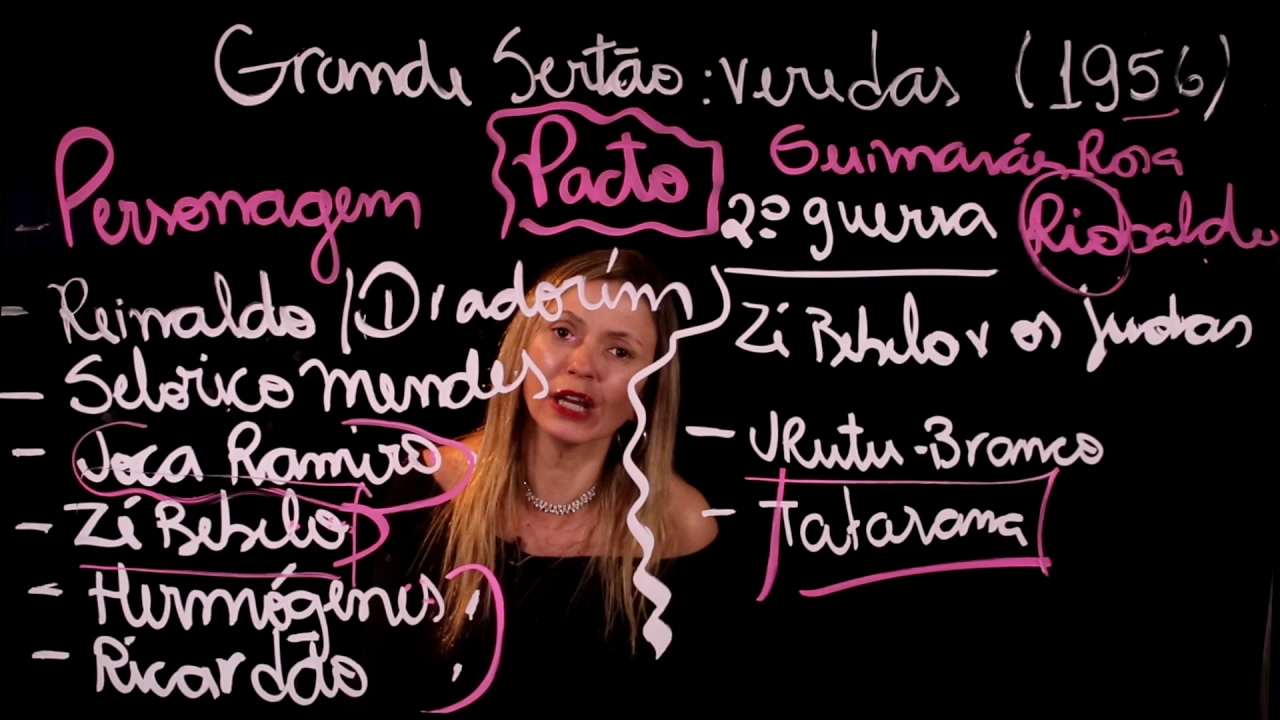 Grande Sertão: veredas (1956)
Pacto
Guimarães Rosa
Personagem
2ª guerra
Riobaldo
- Reinaldo / Diadorim
Zé Bebelo v os judas
- Selorico Mendes
- Joca Ramiro
- URutu-Branco
- Zé Bebelo
- Tatarana
- Hermógenes
- Ricardão